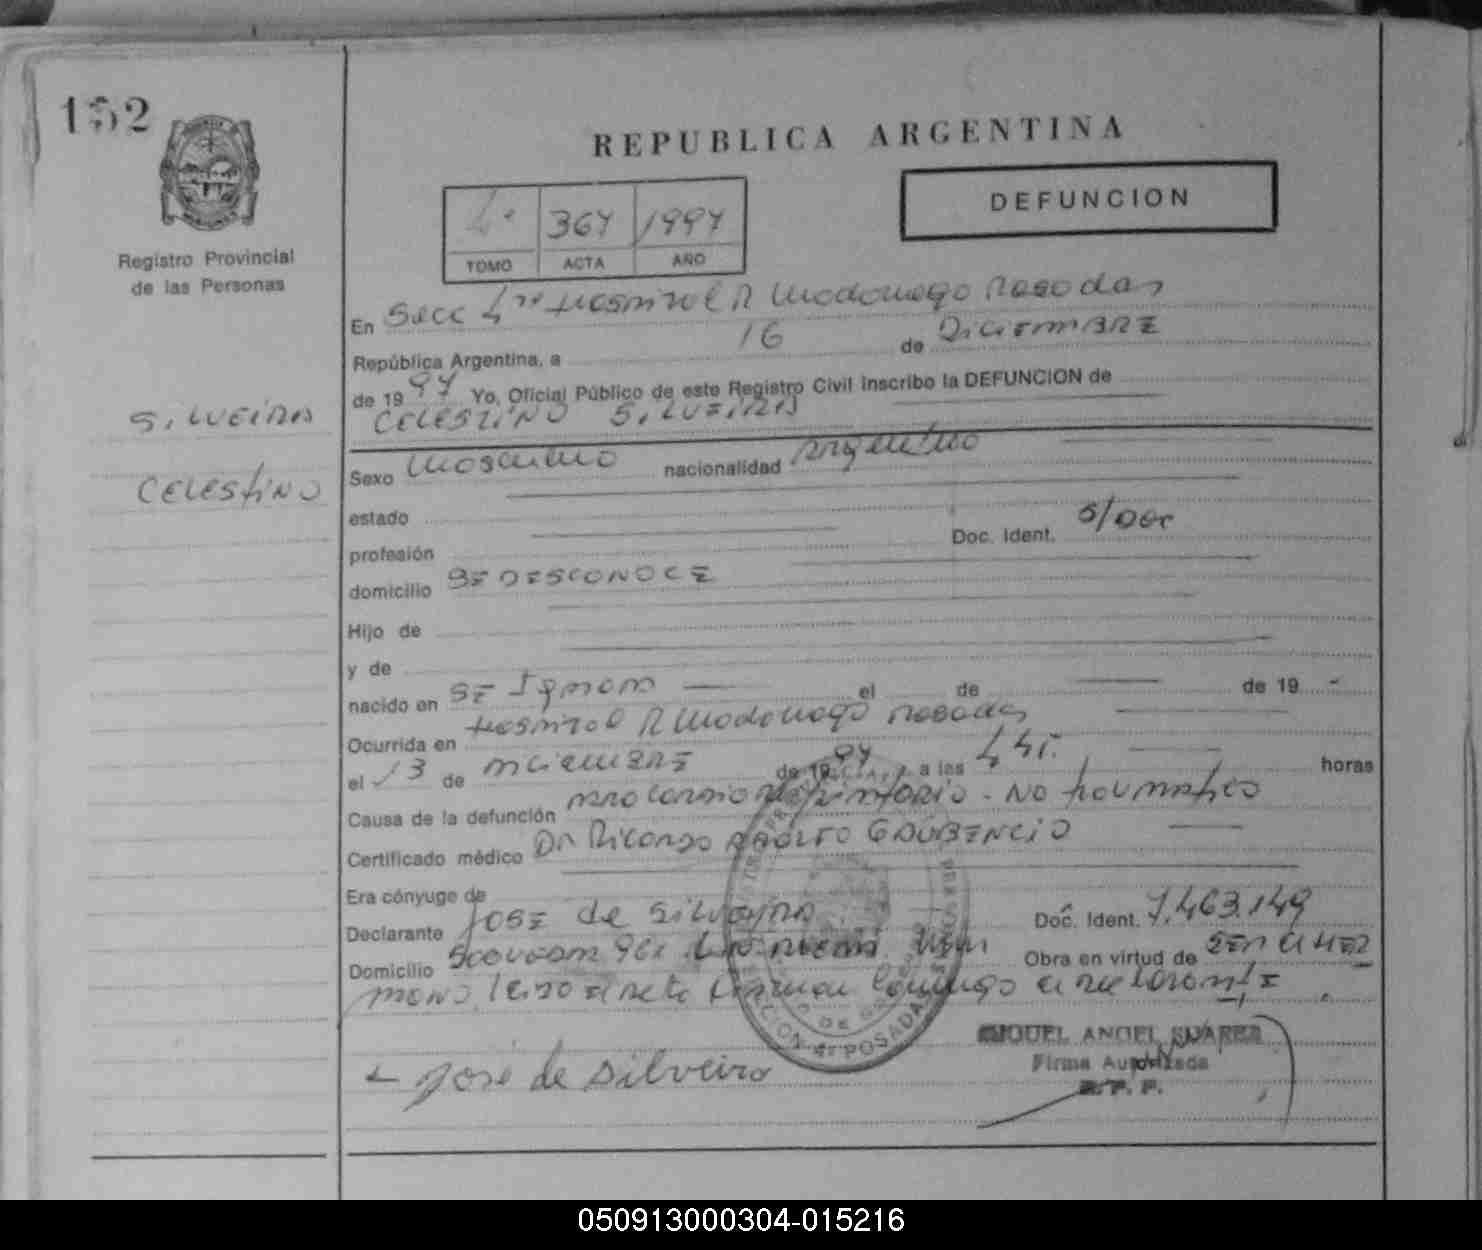 152
REPUBLICA ARGENTINA
DEFUNCION
4º 367 1997
TOMO ACTA AÑO
Registro Provincial
de las Personas
En Secc 4ta Hospital R Madariaga Posadas
República Argentina, a 16 de DICIEMBRE
de 1997 Yo, Oficial Público de este Registro Civil inscribo la DEFUNCION de
CELESTINO SILVEIRA
SILVEIRA
CELESTINO
Sexo Masculino nacionalidad Argentino
estado
profesión Doc. Ident. S/Doc
domicilio SE DESCONOCE
Hijo de
y de
nacido en SE Ignora el de de 19
Ocurrida en Hospital R Madariaga Posadas
el 13 de DICIEMBRE de 1997 a las horas
Causa de la defunción PARO CARDIO RESPIRATORIO - NO TRAUMATICO
Certificado médico Dr Ricardo ADOLFO GAUDENCIO
Era cónyuge de
Declarante JOSE de Silveira Doc. Ident. 7.463.149
Domicilio Obra en virtud de SER
mano Leido el acta firman conmigo el declarante
José de Silveira
MIGUEL ANGEL SUAREZ
Firma Autorizada
R. P. P.
SECCION 4ta POSADAS
050913000304-015216